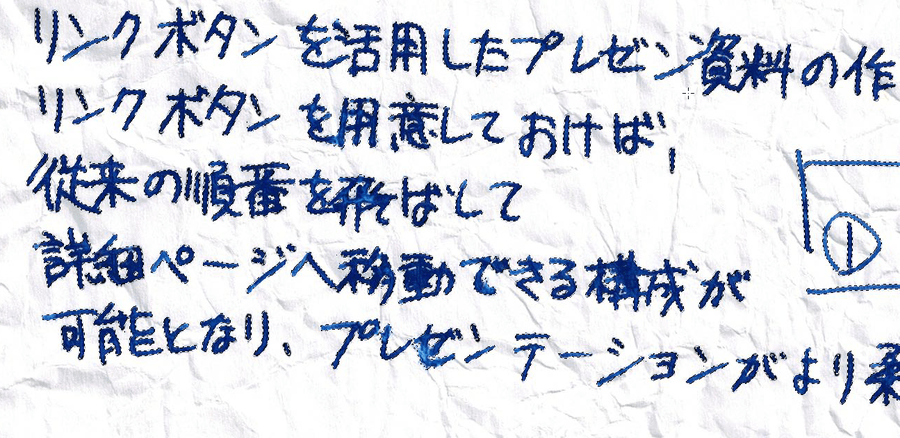 リンクボタンを活用したプレゼン資料の作
リンクボタンを用意しておけば、
従来の順番を飛ばして
詳細ページへ移動できる構成が
①
可能となり、プレゼンテーションがより柔